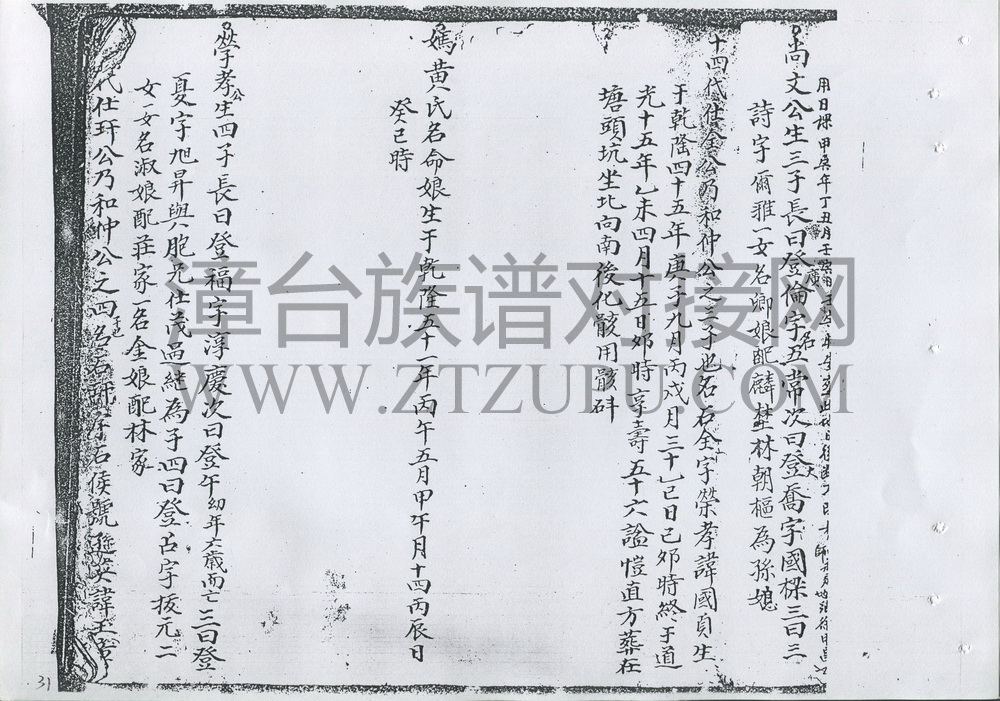 用日標甲庚年丁丑月壬
尚文公生三子長曰登倫字五常次曰登喬字國樑三曰三
詩字爾雅一女名卿娘配麟埜林朝樞為孫媳
十四代仕全公乃和仲公之三子也名石全字榮孝諱國貞生
于乾隆四十五年庚子九月丙戌月三十乙巳日己卯時終于道
光十五年乙未四月十五日卯時享壽五十六謚愷直方葬在
塘頭坑坐北向南後化骸用骸砗
媽黃氏名命娘生于乾隆五十一年丙午五月甲午月十四丙辰日
癸巳時
榮孝公生四子長曰登福字淳慶次曰登午幼年六歲而亡三曰登
夏字旭昇與八胞兄仕茂過継為子四曰登吕字援元二
女一女名淑娘配莊家一名金娘配林家
代仕玕公乃和仲公之四子也名石 字石侯號遜英諱玉
漳台族谱对接网
WWW.ZTZUPU.COM
31